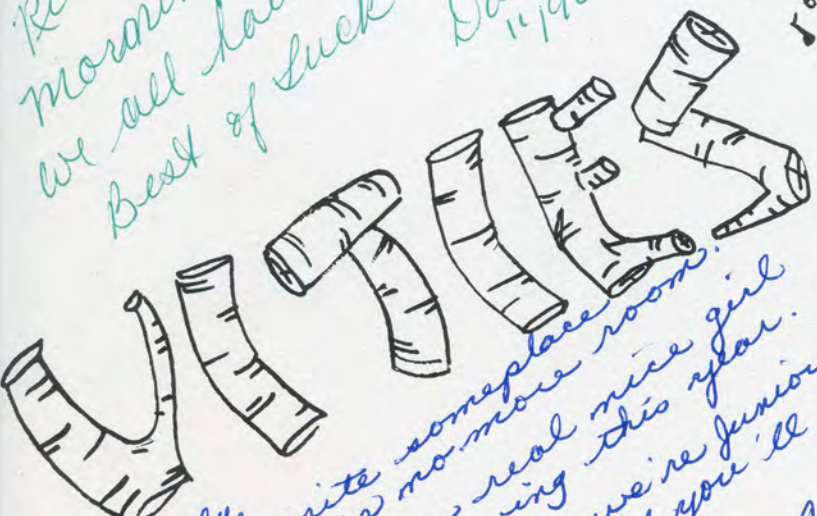 mornin
we all ha
Best of Luck
VITIES
rite someplace
no more room.
real nice girl
ing this year.
we're Junior
you'll